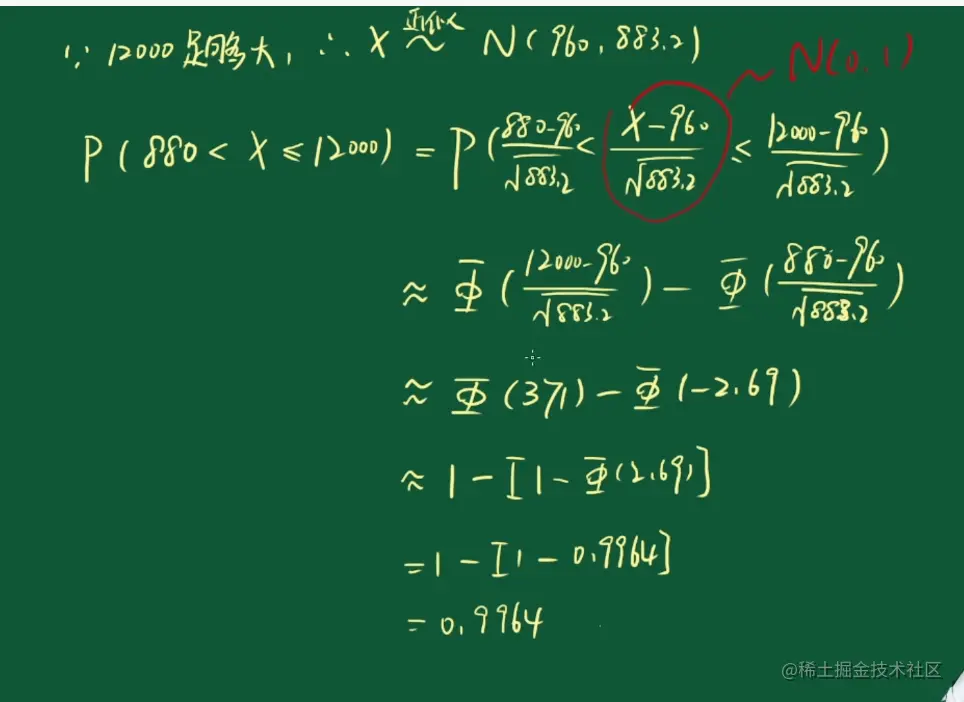 ∵ 12000足够大, ∴ X 近似~ N(960, 883.2)
~ N(0,1)
P(880 < X ≤ 12000) = P(880-960/√883.2 < X-960/√883.2 ≤ 12000-960/√883.2)
≈ Φ(12000-960/√883.2) - Φ(880-960/√883.2)
≈ Φ(371) - Φ(-2.69)
≈ 1 - [1 - Φ(2.69)]
= 1 - [1 - 0.9964]
= 0.9964
@稀土掘金技术社区